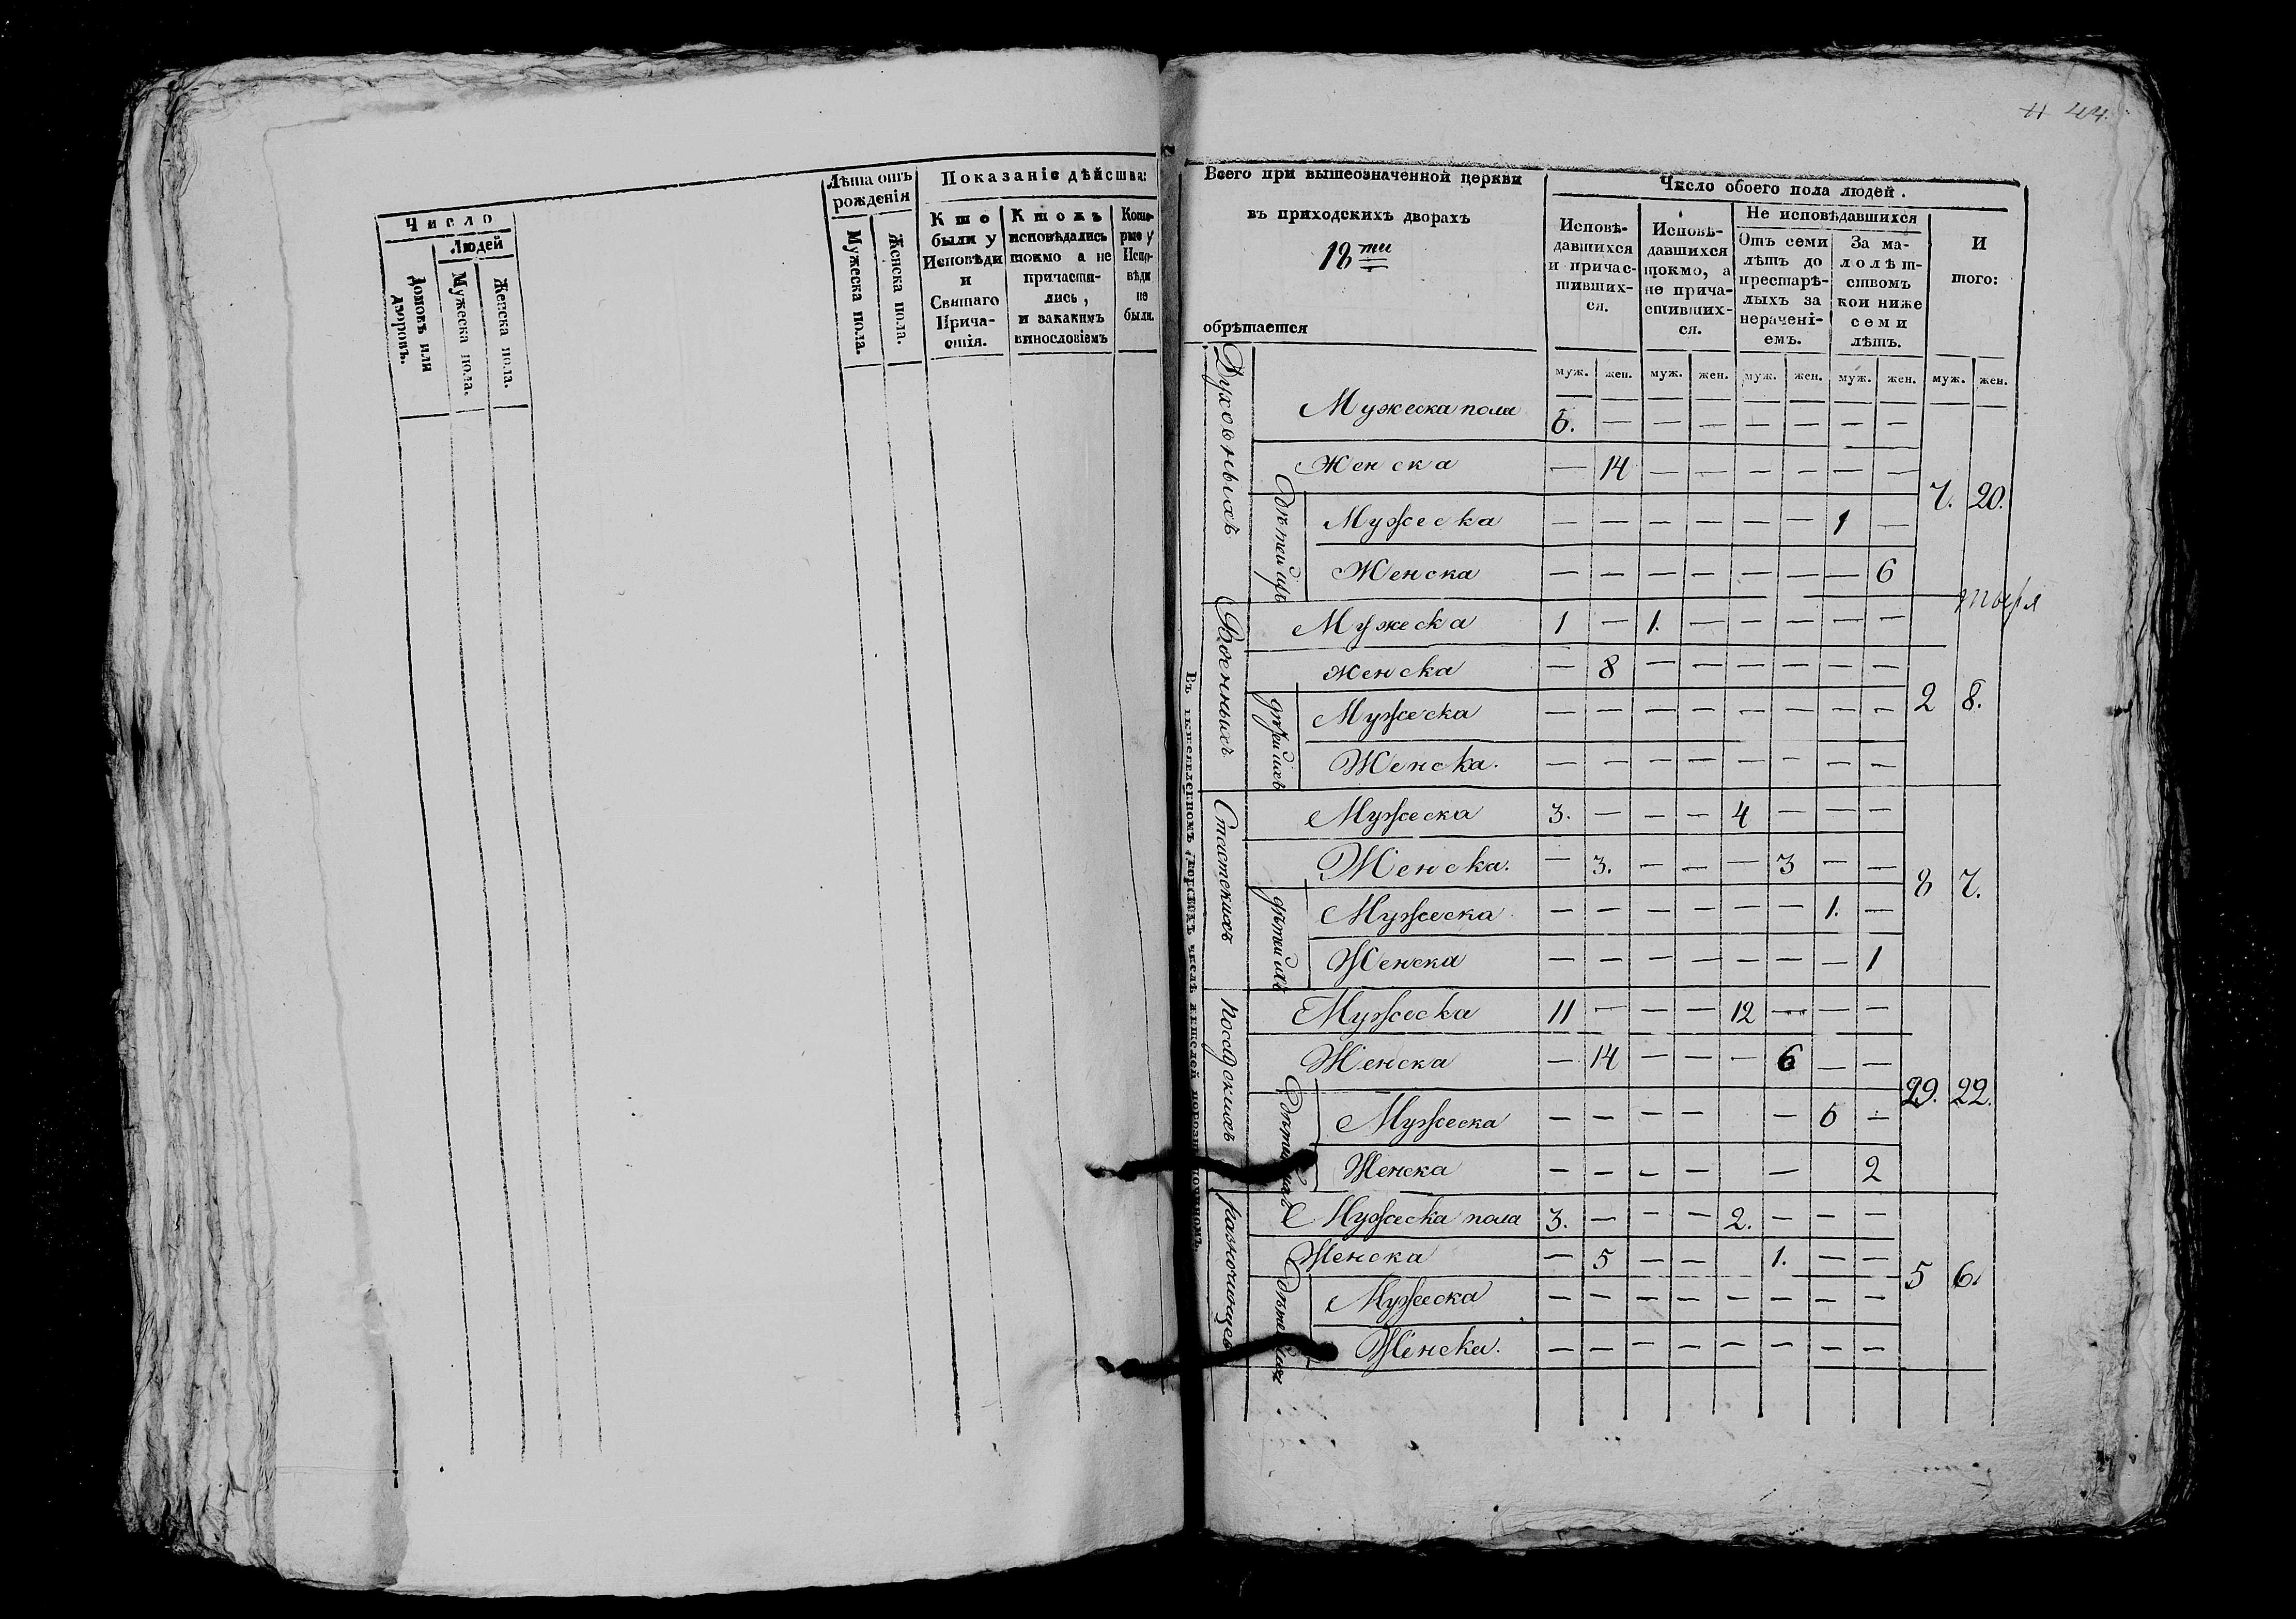 Число
Людей
Домовъ или дворовъ.
Мужеска пола.
Женска пола.
Лѣта отъ рожденія
Мужеска пола.
Женска пола.
Показаніе дѣйства:
Кто были у Исповѣди и Святаго Прича-стія.
Ктожъ исповѣдались токмо а не причасти-лись, и закакимъ винословіемъ
Кото-рые у Испо-вѣди не были.
44.
Всего при вышеозначенной церкви
въ приходскихъ дворахъ
18 ти
обрѣтается
Число обоего пола людей.
Исповѣ-давшихся и причас-тивших-ся.
Исповѣ-давшихся токмо, а не прича-стивших-ся.
Не исповѣдавшихся
Отъ семи лѣтъ до престарѣ-лыхъ за нераченi-емъ.
За ма-лолѣт-ствомъ кои ниже семи лѣтъ.
И того:
муж. жен. муж. жен. муж. жен. муж. жен. муж. жен.
Духовныхъ
Мужеска пола 6. — — — — — — —
Женска — 14 — — — — — —
7. 20.
Дѣтей ихъ
Мужеска — — — — — — 1 —
Женска — — — — — — — 6
Военныхъ
Мужеска 1 — 1. — — — — —
Женска — 8 — — — — — —
2 8.
дѣтей ихъ
Мужеска — — — — — — — —
Женска. — — — — — — — —
Статскихъ
Мужеска 3. — — — 4 — — —
Женска. — 3. — — — 3 — —
8 7.
дѣтей ихъ
Мужеска — — — — — — 1. —
Женска — — — — — — — 1
Посадскихъ
Мужеска 11 — — — 12 — — —
Женска — 14 — — — 6 — —
29. 22.
Мужеска — — — — — 6 —
Женска — — — — — 2
Разночинцевъ
Мужеска пола 3. — — — 2. — — —
Женска — 5 — — 1. — —
5 6.
Мужеска — — — — — — — —
Женска. — — — — — — — —